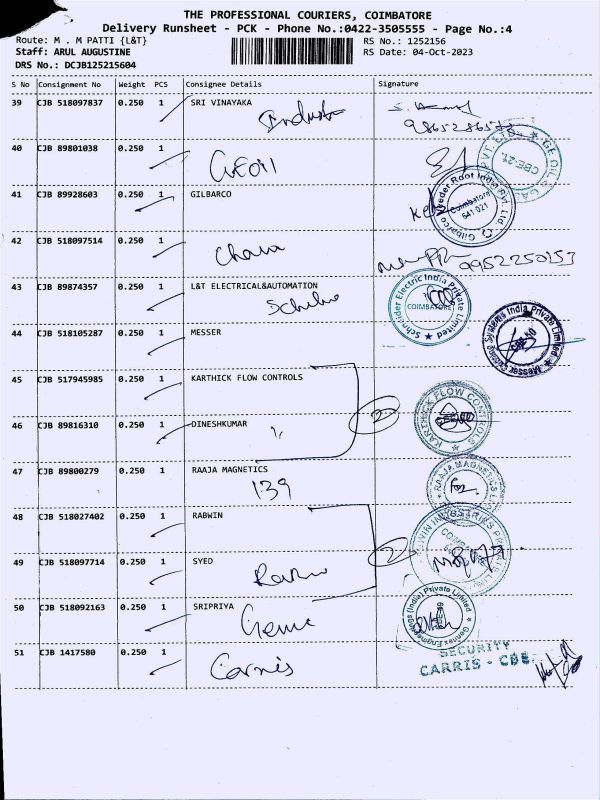 THE PROFESSIONAL COURIERS, COIMBATORE
Delivery Runsheet - PCK - Phone No.:0422-3505555 - Page No.:4
Route: M . M PATTI {L&T}
RS No.: 1252156
Staff: ARUL AUGUSTINE
RS Date: 04-Oct-2023
DRS No.: DCJB125215604
S No Consignment No Weight PCS Consignee Details Signature
39 CJB 518097837 0.250 1 SRI VINAYAKA
40 CJB 89801038 0.250 1
GEOIL
41 CJB 89928603 0.250 1 GILBARCO
Gilbarco Veeder Root India Pvt. Ltd.
Coimbatore
641 021
42 CJB 518097514 0.250 1
9952250153
43 CJB 89874357 0.250 1 L&T ELECTRICAL&AUTOMATION
Schneider Electric India Private Limited
COIMBATORE
44 CJB 518105287 0.250 1 MESSER
Messer Cutting Systems India Private Limited
45 CJB 517945985 0.250 1 KARTHICK FLOW CONTROLS
KARTHICK FLOW CONTROLS
46 CJB 89816310 0.250 1 DINESHKUMAR
2
47 CJB 89800279 0.250 1 RAAJA MAGNETICS
139
RAAJA MAGNETICS
48 CJB 518027402 0.250 1 RABWIN
49 CJB 518097714 0.250 1 SYED
2
50 CJB 518092163 0.250 1 SRIPRIYA
51 CJB 1417580 0.250 1
Carris
SECURITY
CARRIS - CBE